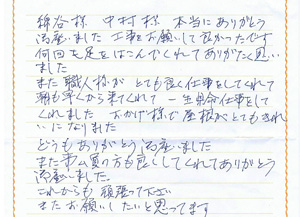 綿谷様 中村様 本当にありがとう
御座いました 工事をお願いして良かったです
何回も足をはこんでくれてありがたく思い
ました
また職人様が とても良く仕事をしてくれて
朝も早くから来てくれて 一生懸命仕事をして
くれました おかげ様で屋根がとてもきれ
いになりました
どうもありがとう御座いました
また の方も良くしてくれてありがとう
御座いました
これからも頑張って下さい
またお願いしたいと思ってます